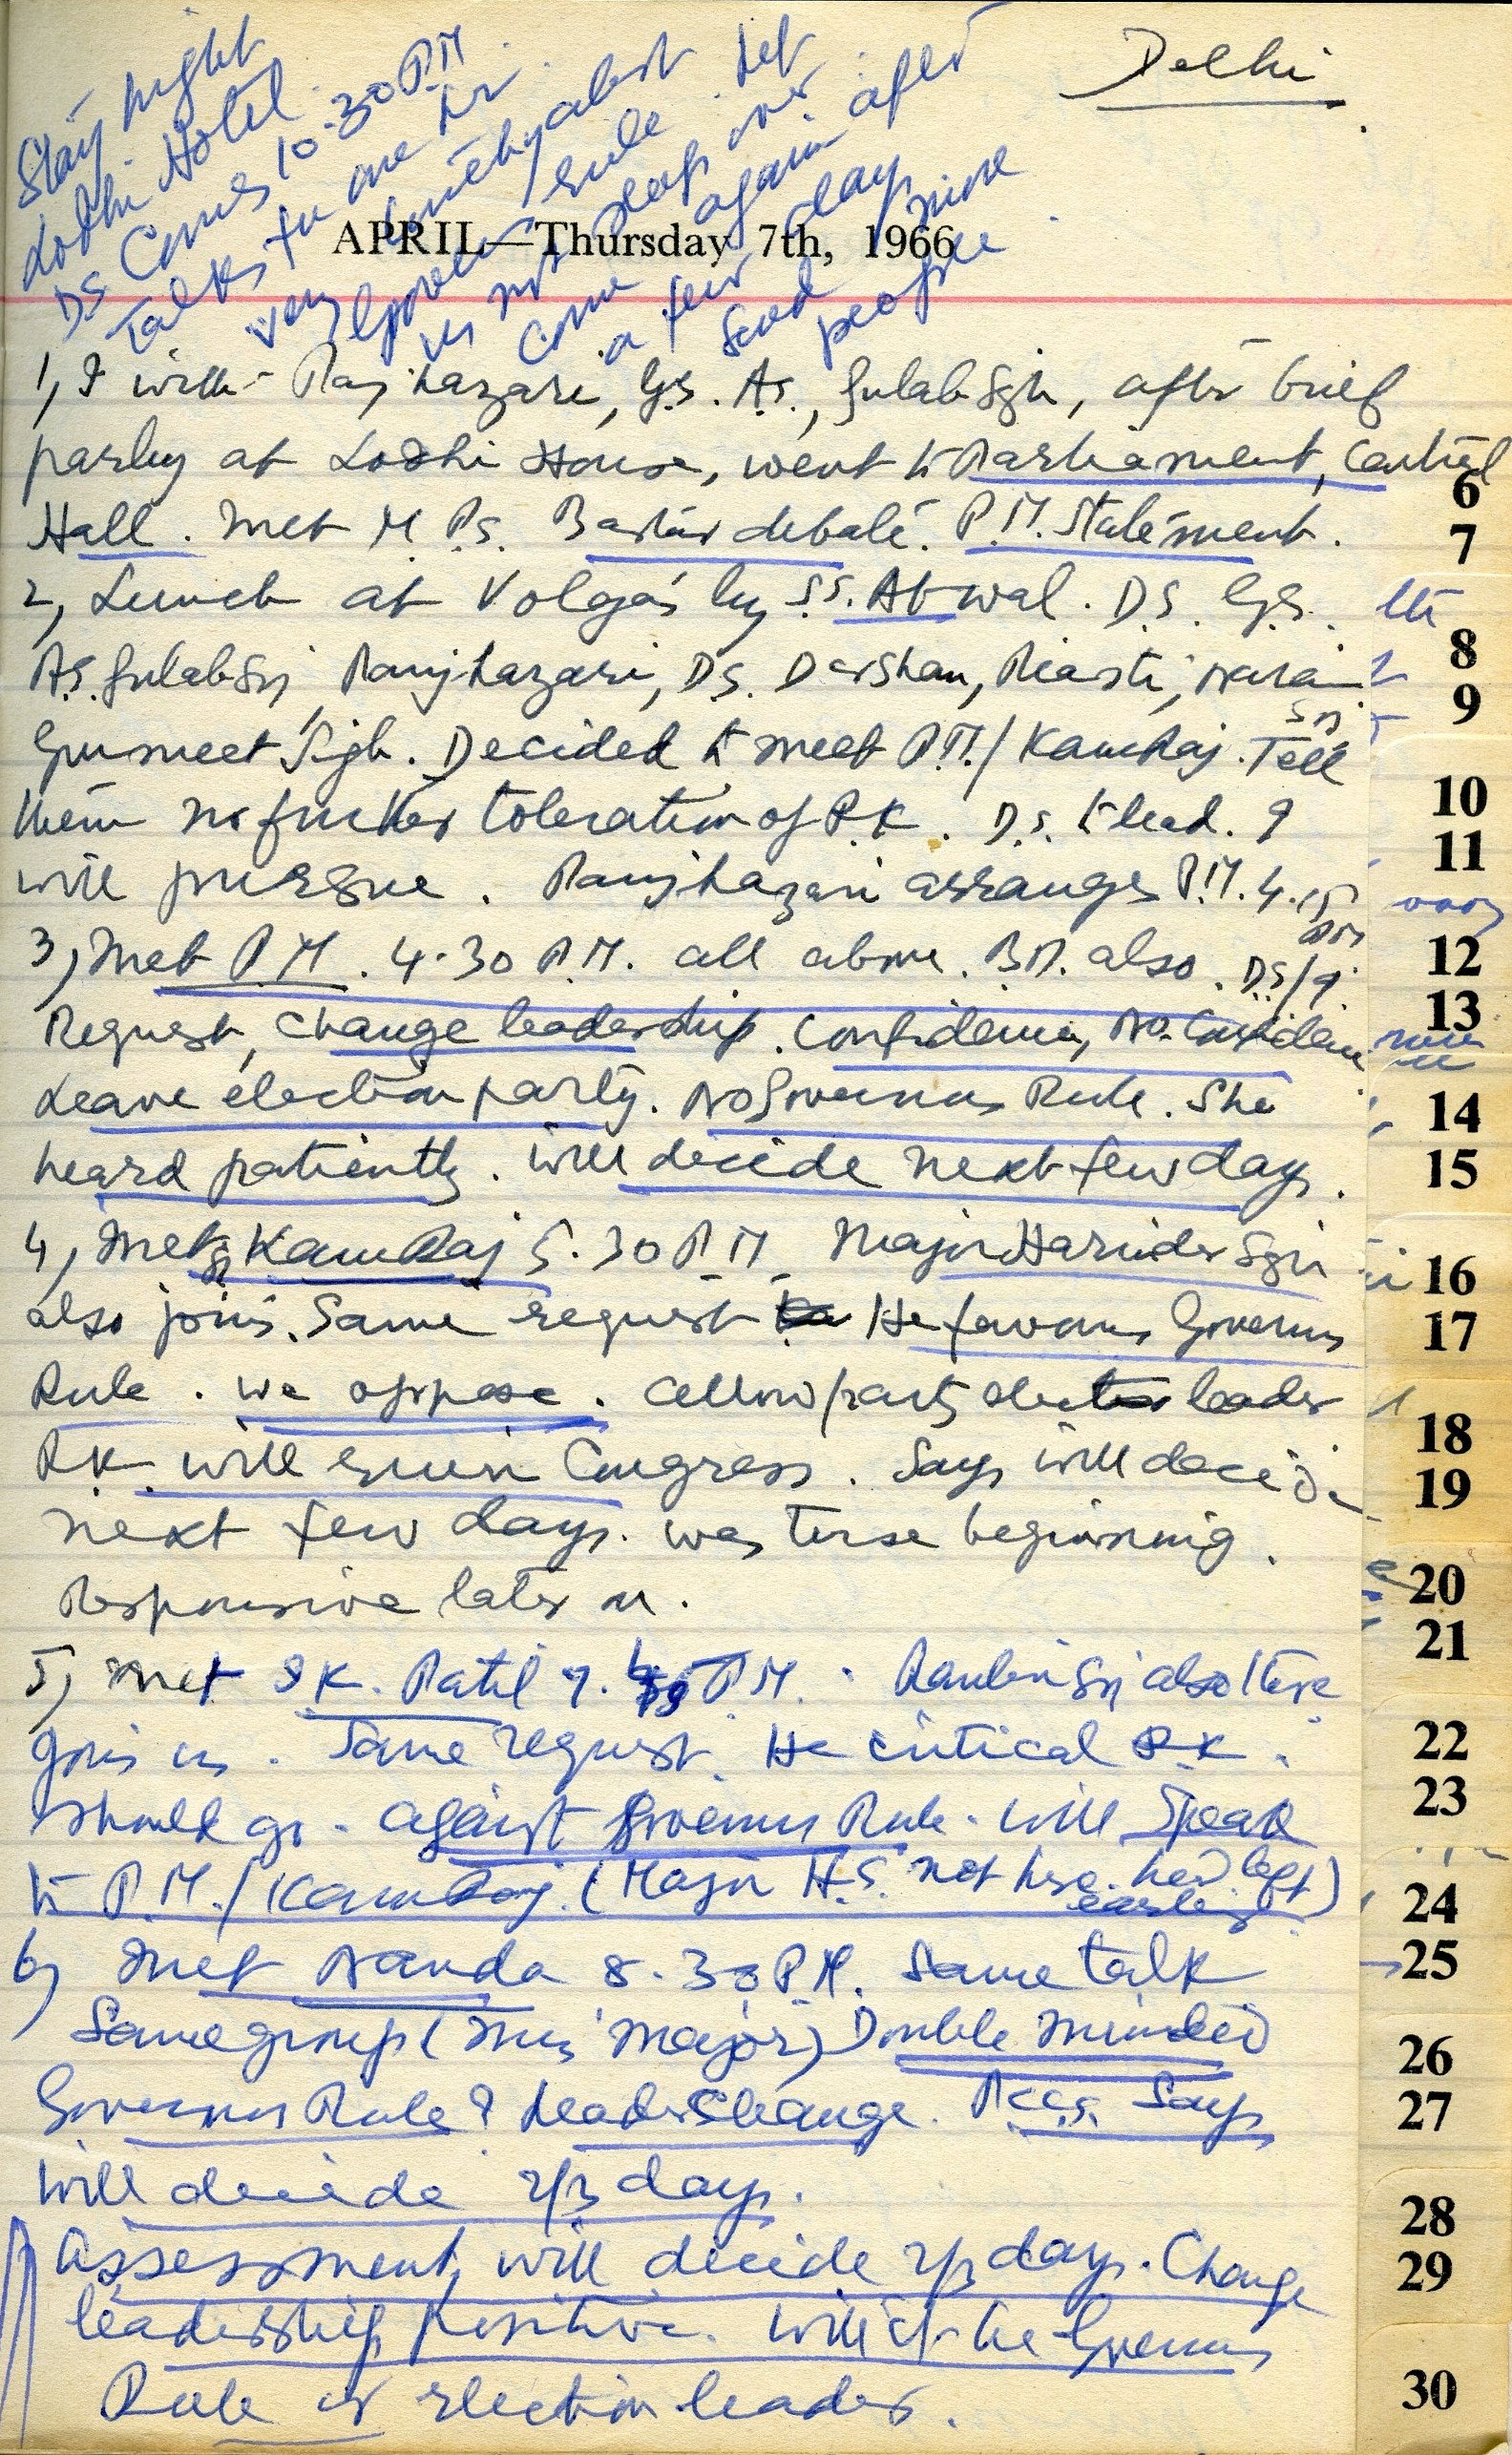 Delhi.
Stay night
Lodhi Hotel.
DS Comes 10.30 PM
Talks for one hr.
very
Governors rule. Let
us not sleep over
come again after
a few days
send mine
people.
APRIL—Thursday 7th, 1966
1, I with Ranjhazari, G.S. A.S., Gulab Sgh, after brief
parley at Lodhi House, went to Parliament, Central
Hall. Met M.P.s. Bastar debate. P.M. Statement.
2, Lunch at Volga's by S.S. Atwal. D.S. G.S.
A.S. Gulab Sgh, Ranjhazari, D.S. Darshan, Piasti, Narain
Sgh
Gurmeet Sigh. Decided to meet P.M./Kamraj. Tell
them no further toleration of R.K. D.S. to lead. I
will pursue. Ranjhazari arranges P.M. 4.15
PM
3, Met P.M. 4.30 P.M. all above. also. DS/I.
Request, change leadership. Confidence, No. Confidence
Leave election party. No Governors Rule. She
heard patiently. Will decide next few days.
4, Met Kamraj 5.30 P.M. Major Harinder Sgh
also joins. Same request He favours Governors
Rule. We oppose. Allow party elect leader
R.K. will ruin Congress. Says will decide
next few days. Was terse beginning.
Responsive later on.
5, Met S.K. Patil 7. P.M. also there
joins us. Same request. He critical R.K.
should go. Against Governors Rule. Will Speak
to P.M./Kamraj. (Major H.S. not here. had left
earlier)
6, Met Nanda 8.30 P.M. Same talk
Same group (minus Major) Double minded
Governors Rule? Leader change. Says
Will decide 2/3 days.
Assessment, will decide 2/3 days. Change
leadership positive. Will it be Governors
Rule or election leader.
6
7
8
9
10
11
12
13
14
15
16
17
18
19
20
21
22
23
24
25
26
27
28
29
30